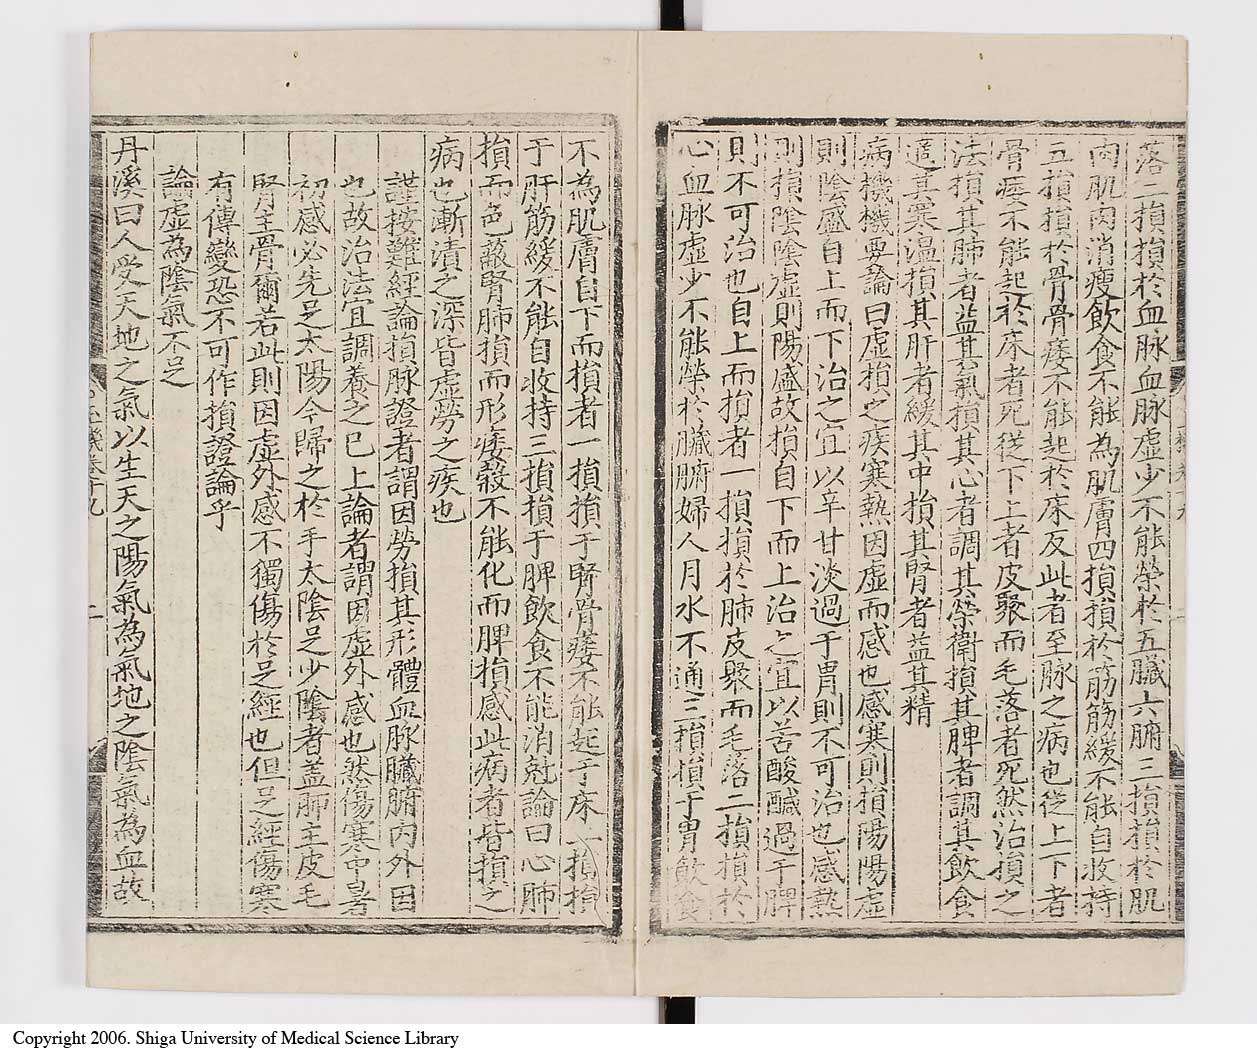 落二損損於血脉血脉虛少不能榮於五臟六腑三損損於肌
肉肌肉消瘦飲食不能為肌膚四損損於筋筋緩不能自收持
五損損於骨骨痿不能起於床反此者至脉之病也從上下者
骨痿不能起於床者死從下上者皮聚而毛落者死然治損之
法損其肺者益其氣損其心者調其榮衛損其脾者調其飲食
適其寒溫損其肝者緩其中損其腎者益其精
病機機要論曰虛損之疾寒熱因虛而感也感寒則損陽陽虛
則陰盛自上而下治之宜以辛甘淡過于胃則不可治也感熱
則損陰陰虛則陽盛故損自下而上治之宜以苦酸鹹過于脾
則不可治也自上而損者一損損於肺皮聚而毛落二損損於
心血脉虛少不能榮於臟腑婦人月水不通三損損于胃飲食
不為肌膚自下而損者一損損于腎骨痿不能起于床二損損
于肝筋緩不能自收持三損損于脾飲食不能消尅論曰心肺
損而色蔽腎肺損而形痿穀不能化而脾損感此病者皆損之
病也漸漬之深皆虛勞之疾也
謹按難經論損脉證者謂因勞損其形體血脉臟腑內外因
也故治法宜調養之已上論者謂因虛外感也然傷寒中暑
初感必先足太陽今歸之於手太陰足少陰者盖肺主皮毛
腎主骨爾若此則因虛外感不獨傷於足經也但足經傷寒
有傳變恐不可作損證論乎
論虛為陰氣不足
丹溪曰人受天地之氣以生天之陽氣為氣地之陰氣為血故
Copyright 2006. Shiga University of Medical Science Library